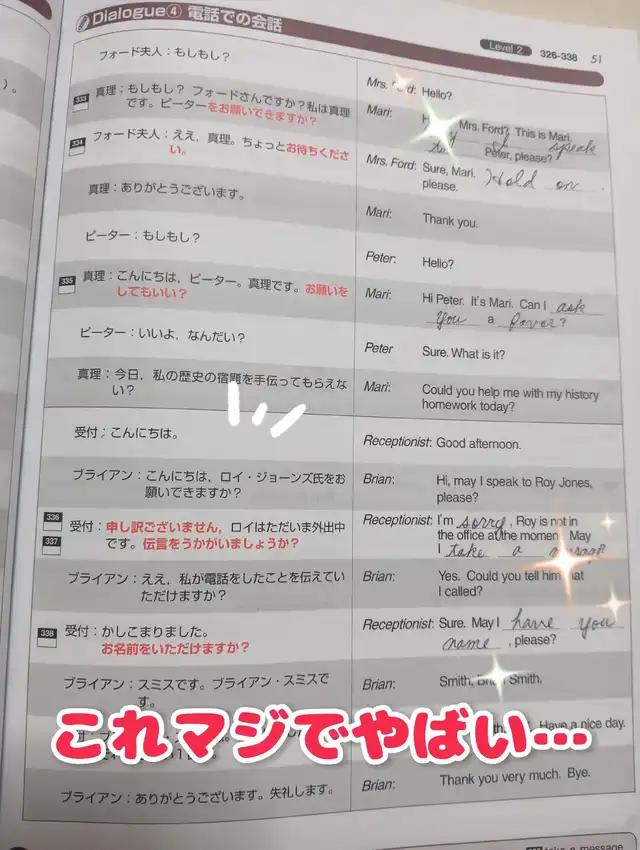 Dialogue④ 電話での会話
Level 2 326-338 51
)。
フォード夫人：もしもし？
Mrs. Hello?
333 真理：もしもし？ フォードさんですか？私は真理
です。ピーターをお願いできますか？
Mari: Mrs. Ford? This is Mari.
I speak
to Peter, please?
334 フォード夫人：ええ、真理。ちょっとお待ちくださ
い。
Mrs. Ford: Sure, Mari. Hold on .
please.
真理：ありがとうございます。
Mari: Thank you.
ピーター：もしもし？
Peter: Hello?
335 真理：こんにちは，ピーター。真理です。お願いを
してもいい？
Mari: Hi Peter. It's Mari. Can I ask
you a favor?
ピーター：いいよ，なんだい？
Peter Sure. What is it?
真理：今日，私の歴史の宿題を手伝ってもらえな
い？
Mari: Could you help me with my history
homework today?
受付：こんにちは。
Receptionist: Good afternoon.
ブライアン：こんにちは，ロイ・ジョーンズ氏をお
願いできますか？
Brian: Hi, may I speak to Roy Jones,
please?
336 337 受付：申し訳ございません，ロイはただいま外出中
です。伝言をうかがいましょうか？
Receptionist: I'm sorry, Roy is not in
the office at the moment. May
I take a message?
ブライアン：ええ，私が電話をしたことを伝えてい
ただけますか？
Brian: Yes. Could you tell him that
I called?
338 受付：かしこまりました。
お名前をいただけますか？
Receptionist: Sure. May I have you
name , please?
ブライアン：スミスです。ブライアン・スミスで
す。
Brian: Smith, Brian Smith.
Have a nice day.
これマジでやばい…
ブライアン：ありがとうございます。失礼します。
Brian: Thank you very much. Bye.
take a message